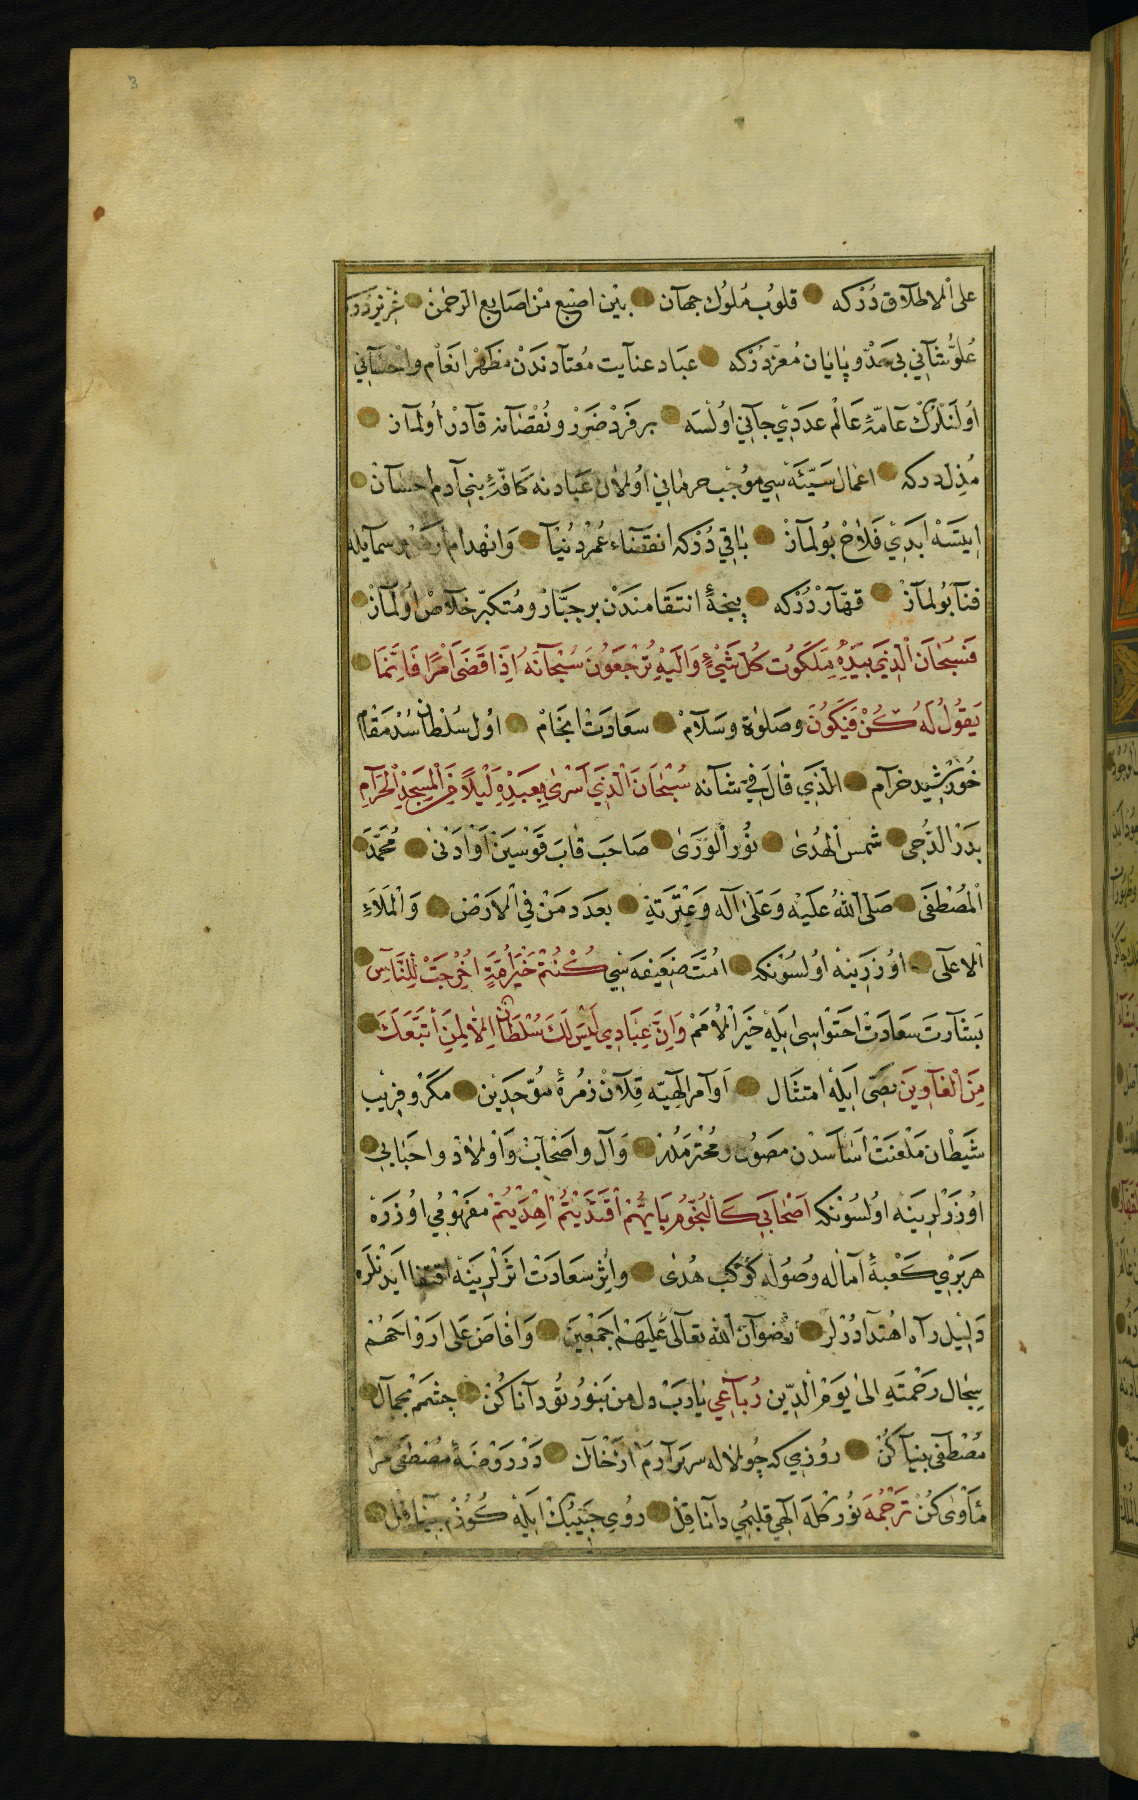 3
على الاطلاق دُرْكه قلوب مُلوك جهان بين اصبع من اصابع الرحمن عزيز دُرْكه
علوّ شانى بى حدّ و پايان معزّ دُرْكه عباد عنايت معتادندن مظهر انعام و احسانى
اولنلرك عامّهٔ عالم عددى جانى اولسه بر فرد ضرر و نقصانه قادر اولماز
مُذِل دركه اعمال سيّئه سى موجب حرمانى اولان عبادنه كافّهٔ بنى آدم احسان
ايتسه ابدى فلاح بولماز باقى دُرْكه انقضاء عمر دنيا و انهدام سمايله
فنا بولماز قهّار دُرْكه پنجهٔ انتقامندن بر جبّار و متكبّر خلاص اولماز
فَسُبْحَانَ الَّذِي بِيَدِهِ مَلَكُوتُ كُلِّ شَيْءٍ وَإِلَيْهِ تُرْجَعُونَ سُبْحَانَهُ إِذَا قَضَى أَمْرًا فَإِنَّمَا
يَقُولُ لَهُ كُنْ فَيَكُونُ و صلوة و سلام سعادت انجام اول سلطان سُدْ مقام
خورشيد خرام الذى قال فى شانه سُبْحَانَ الَّذِي أَسْرَى بِعَبْدِهِ لَيْلًا مِنَ الْمَسْجِدِ الْحَرَامِ
بدر الدّجى شمس الهدى نور الورى صاحب قاب قوسين او ادنى محمّد
المصطفى صلى الله عليه و على آله و عترته بعدد من فى الارض و الملاء
الاعلى اوزرينه اولسونكه امّت ضعيفه سى كُنْتُمْ خَيْرَ أُمَّةٍ أُخْرِجَتْ لِلنَّاسِ
بشارت سعادت احتواسى ايله خير الامم وَإِنَّ عِبَادِي لَيْسَ لَكَ سُلْطَانٌ إِلَّا لِمَنِ اتَّبَعَكَ
مِنَ الْغَاوِينَ نصّى ايله امتثال اوامر الهيّه قلان زمرهٔ موّحدين مكر و فريب
شيطان ملعنت اساسدن مصون و محترملدر و آل و اصحاب و اولاد و احبابى
اوزرلرينه اولسونكه أَصْحَابِي كَالنُّجُومِ بِأَيِّهِمْ اقْتَدَيْتُمْ اهْدَيْتُمْ مفهومى اوزره
هر برى كعبهٔ آماله وصوله كوكب هدى و اثر سعادت اثرلرينه اقتفا ايدنلره
دليل راه اهتدا دُرْلر رضوان الله تعالى عليهم اجمعين و افاض على ارواحهم
سجال رحمته الى يوم الدّين رباعى يا رب دل من بنور تو دانا كن چشمم بجمال
مصطفى بينا كن روزى كه چو لاله سر برآرم از خاك در روضهٔ مصطفى مرا
مأوى كن ترجمه نورڭله الهى قلبمى دانا قل روى حبيبڭ ايله كوزم بينا قل